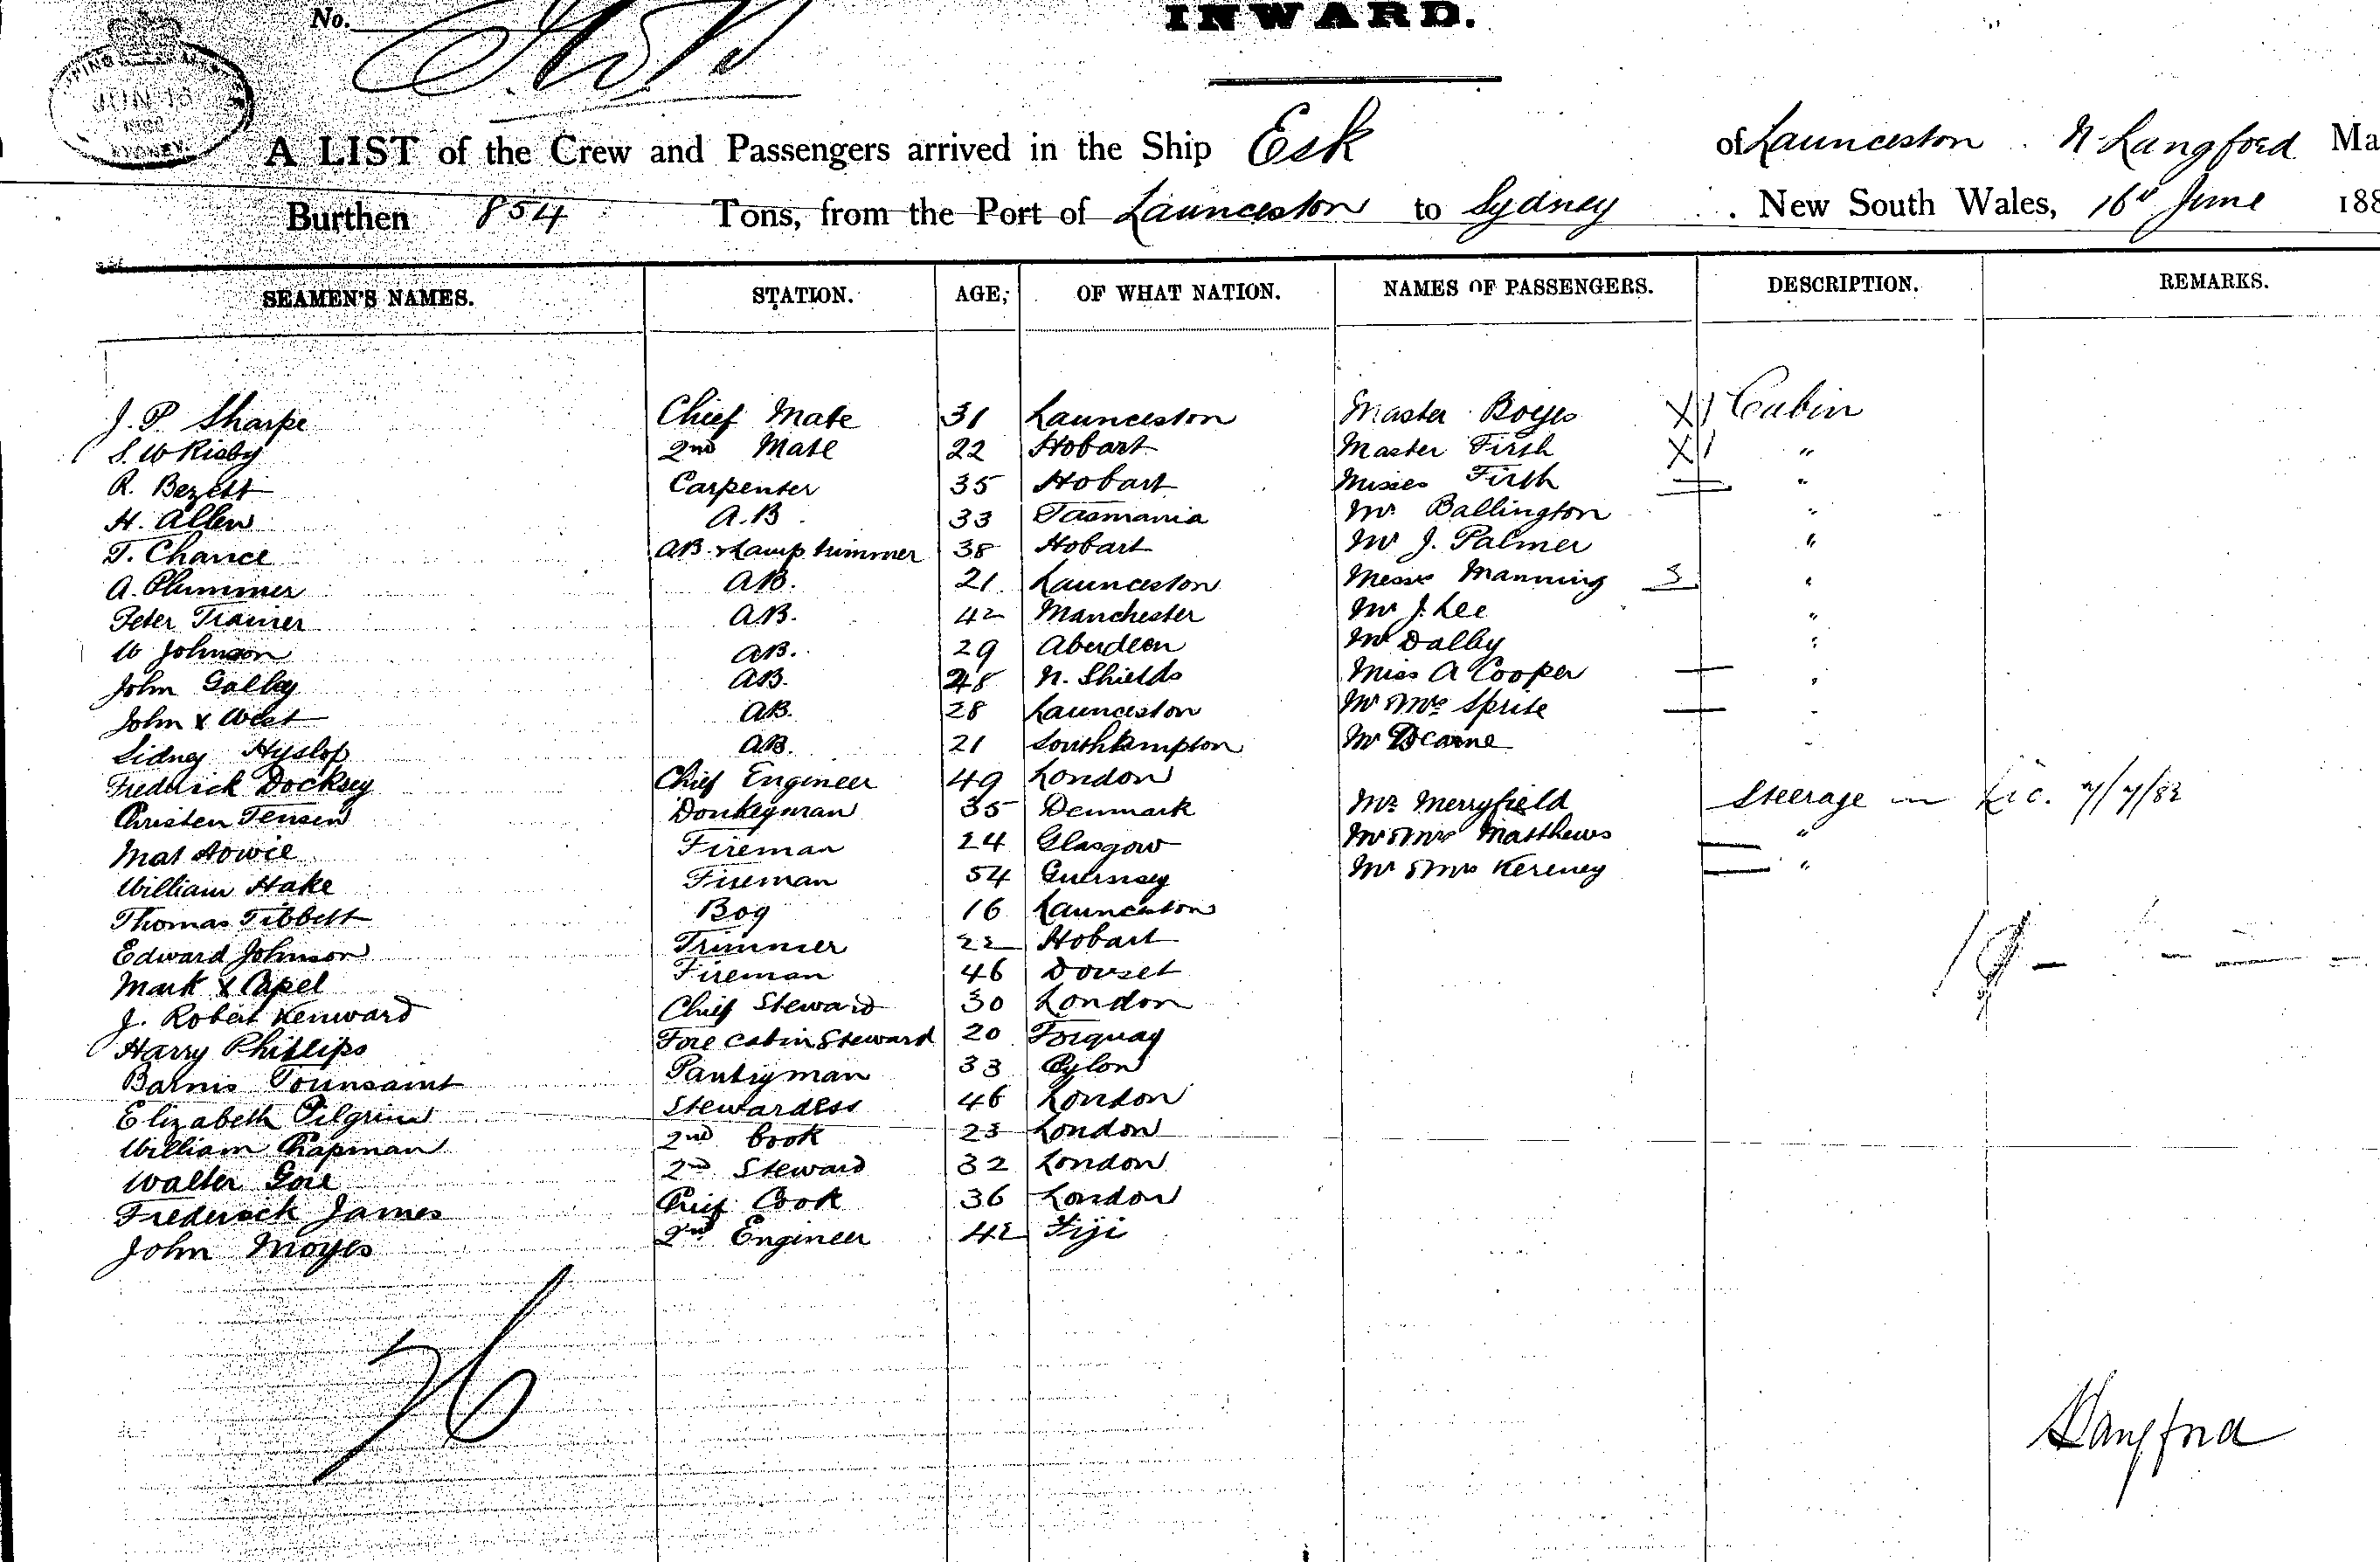 No.
INWARD.
JUN 16
SYDNEY.
A LIST of the Crew and Passengers arrived in the Ship Esk of Launceston N Langford Ma
Burthen 854 Tons, from the Port of Launceston to Sydney New South Wales, 16th June 188
SEAMEN'S NAMES. STATION. AGE, OF WHAT NATION. NAMES OF PASSENGERS. DESCRIPTION. REMARKS.
J. P. Sharpe Chief Mate 31 Launceston Master Boyes X Cabin
S. W Risby 2nd Mate 22 Hobart Master Firth X "
R. Bezett Carpenter 35 Hobart Misses Firth "
H. Allen A.B. 33 Tasmania Mr Ballington "
T. Chance AB & Lamp trimmer 38 Hobart Mr J. Palmer "
A. Plummer AB. 21 Launceston Messrs Manning 3 "
Peter Trainer AB. 42 Manchester Mr J. Lee "
W Johnson AB. 29 Aberdeen Mr Dalby "
John Galley AB. 48 N. Shields Miss A Cooper "
John X West AB. 28 Launceston Mr & Mrs Sprite "
Sidney Hyslop AB. 21 Southampton Mr Dearne "
Frederick Docksey Chief Engineer 49 London
Christen Jensen Donkeyman 35 Denmark Mr Merryfield Steerage
Mat Howie Fireman 24 Glasgow Mr & Mrs Matthews "
William Hake Fireman 54 Guernsey Mr & Mrs Kereney "
Thomas Tibbett Boy 16 Launceston
Edward Johnson Trimmer 22 Hobart
Mark X Capel Fireman 46 Dorset 19
J. Robert Kenward Chief Steward 30 London
Harry Phillips Fore Cabin Steward 20 Torquay
Barnis Tounsaint Pantryman 33 Cylon
Elizabeth Pilgrim Stewardess 46 London
William Chapman 2nd Cook 23 London
Walter Gore 2nd Steward 32 London
Frederick James Chief Cook 36 London
John Moyes 2nd Engineer 42 Fiji
26
Langford